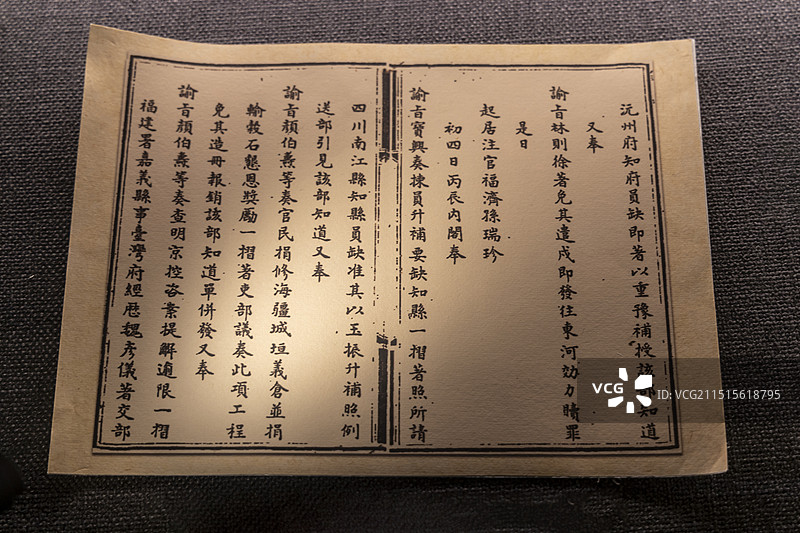 沅州府知府員缺即著以重豫補授該部知道
又奉
諭旨林則徐著免其遣戍即發往東河効力贖罪
是日
起居注官福濟孫瑞珍
初四日丙辰內閣奉
諭旨寶興奏揀員升補要缺知縣一摺著照所請
四川南江縣知縣員缺准其以玉振升補照例
送部引見該部知道又奉
諭旨顏伯燾等奏官民捐修海疆城垣義倉並捐
輸穀石懇恩獎勵一摺著吏部議奏此項工程
免其造冊報銷該部知道單併發又奉
諭旨顏伯燾等奏查明京控咨案提解逾限一摺
福建署嘉義縣事臺灣府經歷魏彥儀著交部
VCG
VCG.COM
ID:VCG211515618795